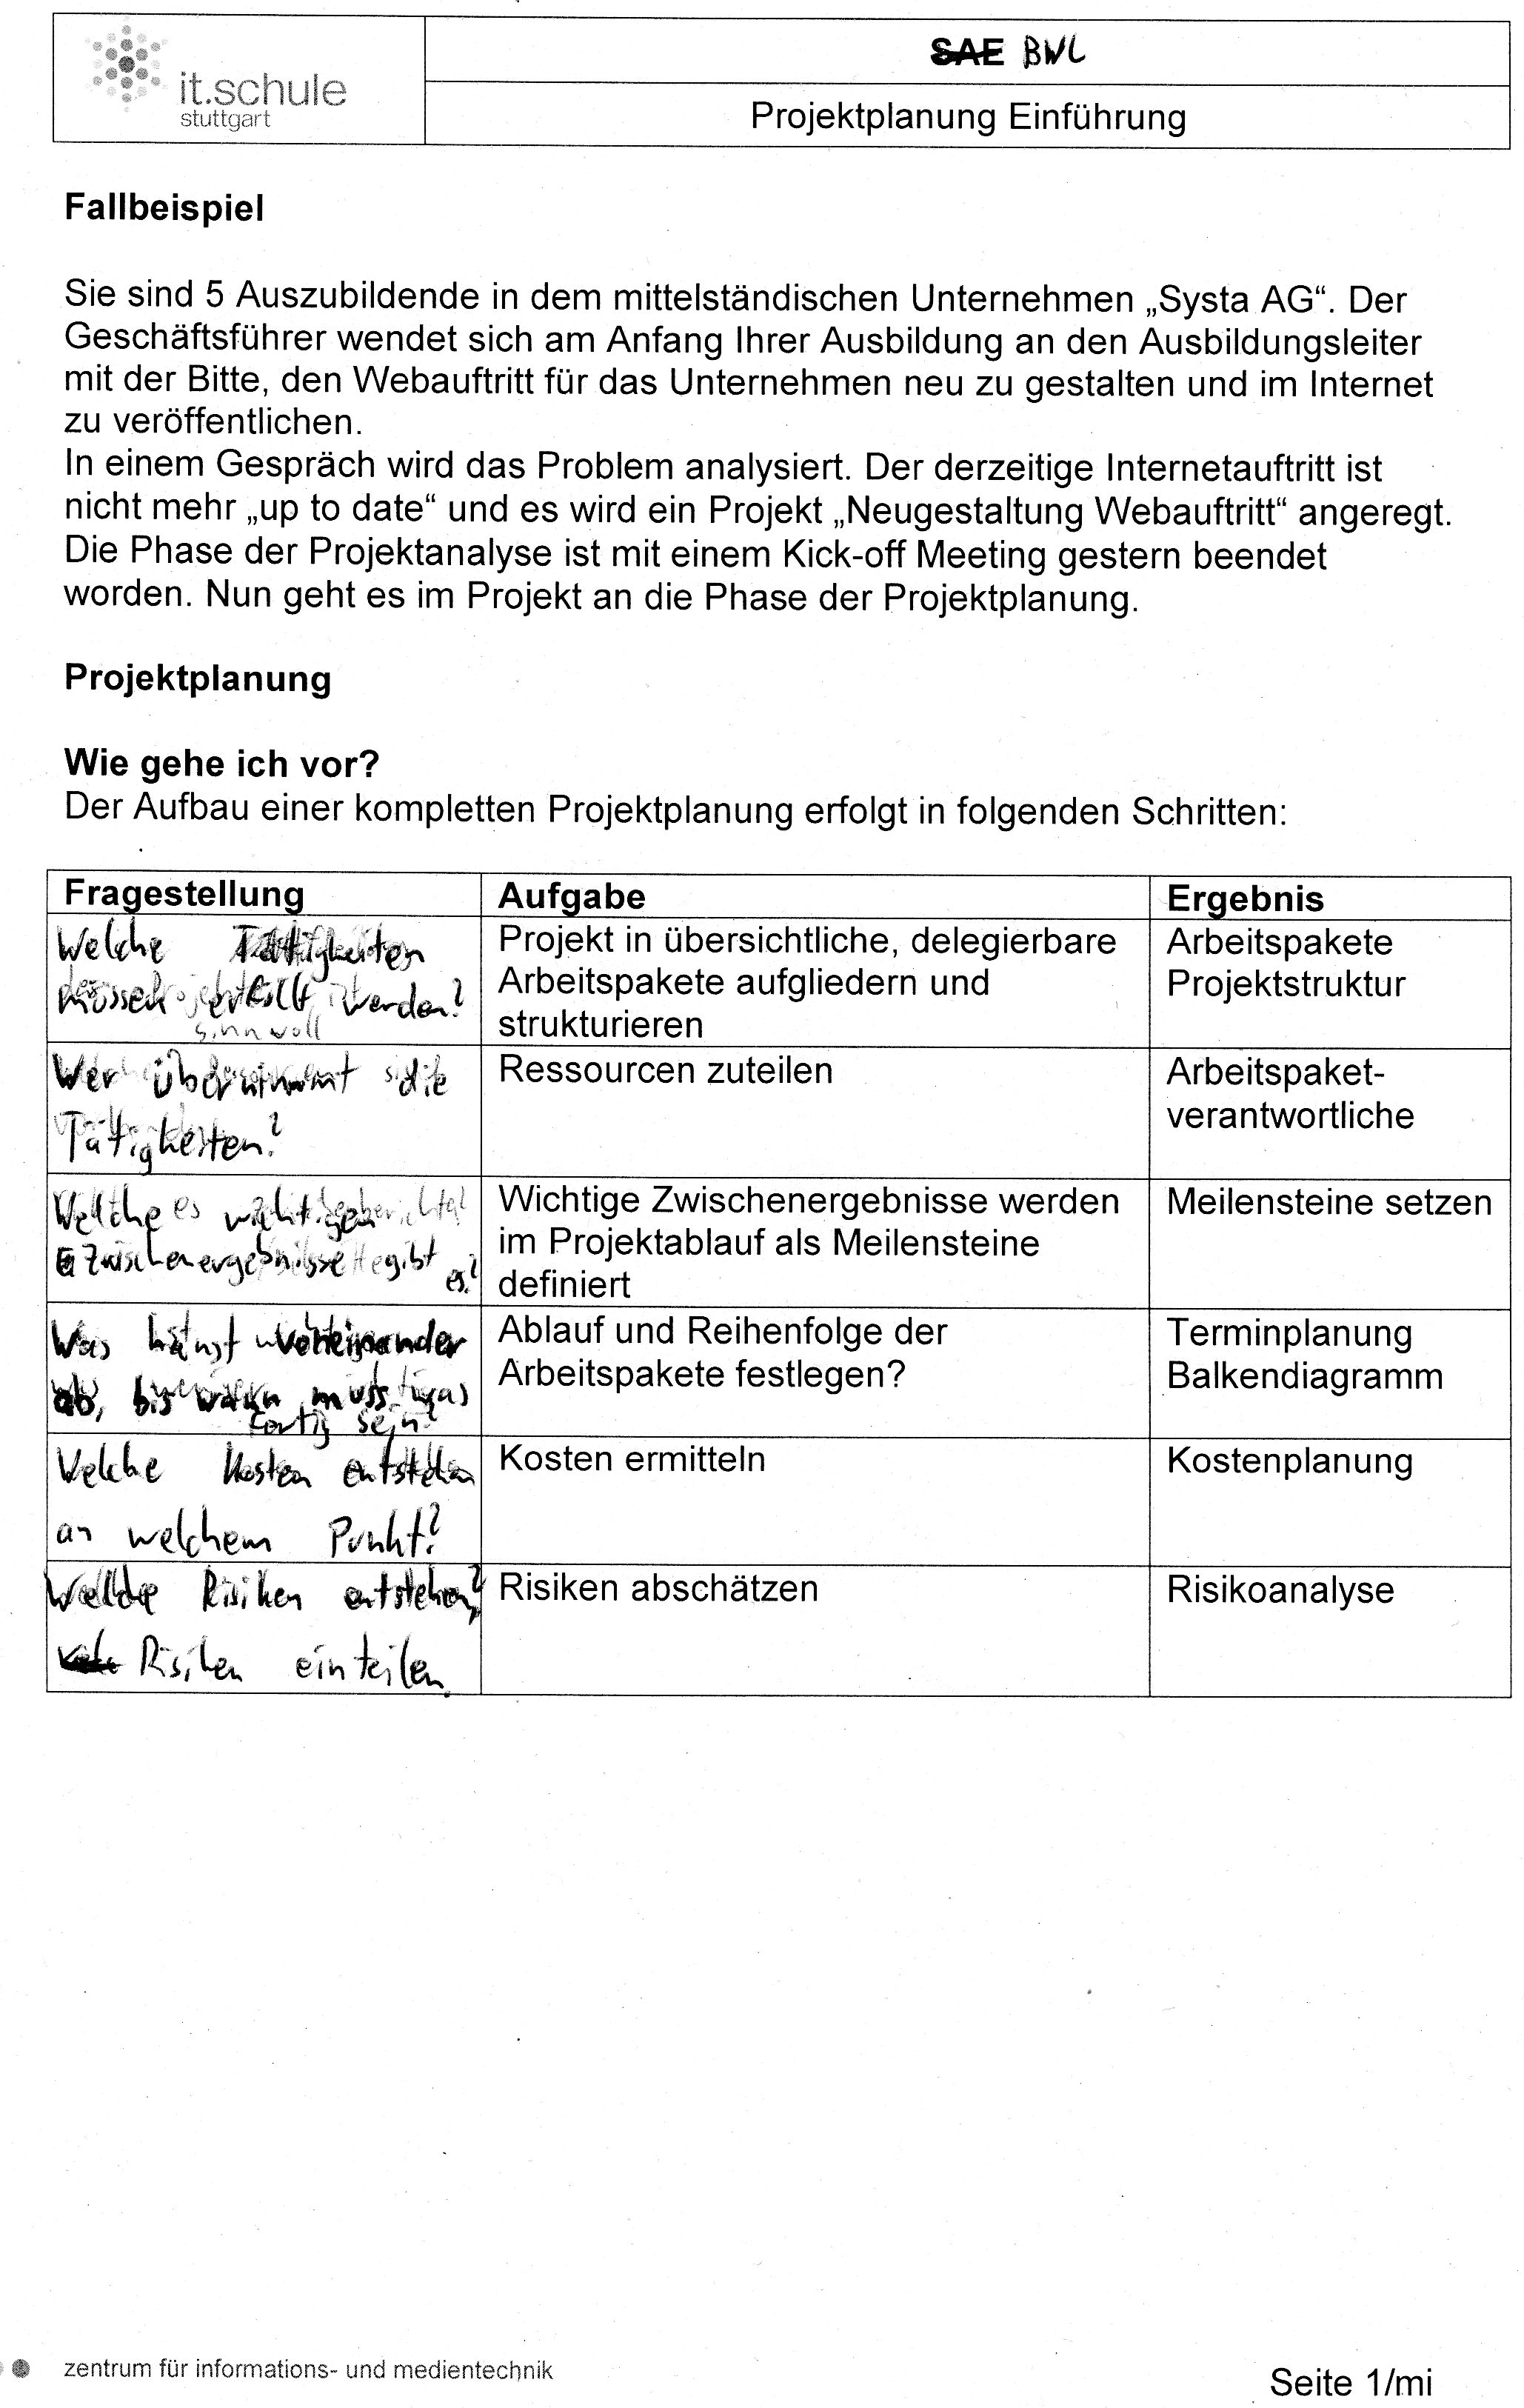 it.schule
stuttgart
SAE BWL
Projektplanung Einführung
Fallbeispiel
Sie sind 5 Auszubildende in dem mittelständischen Unternehmen „Systa AG“. Der
Geschäftsführer wendet sich am Anfang Ihrer Ausbildung an den Ausbildungsleiter
mit der Bitte, den Webauftritt für das Unternehmen neu zu gestalten und im Internet
zu veröffentlichen.
In einem Gespräch wird das Problem analysiert. Der derzeitige Internetauftritt ist
nicht mehr „up to date“ und es wird ein Projekt „Neugestaltung Webauftritt“ angeregt.
Die Phase der Projektanalyse ist mit einem Kick-off Meeting gestern beendet
worden. Nun geht es im Projekt an die Phase der Projektplanung.
Projektplanung
Wie gehe ich vor?
Der Aufbau einer kompletten Projektplanung erfolgt in folgenden Schritten:
Fragestellung Aufgabe Ergebnis
Welche Tätigkeiten
müssen erfüllt werden?
sinnvoll
Projekt in übersichtliche, delegierbare
Arbeitspakete aufgliedern und
strukturieren
Arbeitspakete
Projektstruktur
Wer übernimmt die
Tätigkeiten?
Ressourcen zuteilen
Arbeitspaket-
verantwortliche
Welche wichtigen
Zwischenergebnisse gibt
es?
Wichtige Zwischenergebnisse werden
im Projektablauf als Meilensteine
definiert
Meilensteine setzen
Was hängt voneinander
ab, bis wann muss was
fertig sein?
Ablauf und Reihenfolge der
Arbeitspakete festlegen?
Terminplanung
Balkendiagramm
Welche Kosten entstehen
an welchem Punkt?
Kosten ermitteln
Kostenplanung
Welche Risiken entstehen?
Risiken einteilen.
Risiken abschätzen
Risikoanalyse
zentrum für informations- und medientechnik
Seite 1/mi